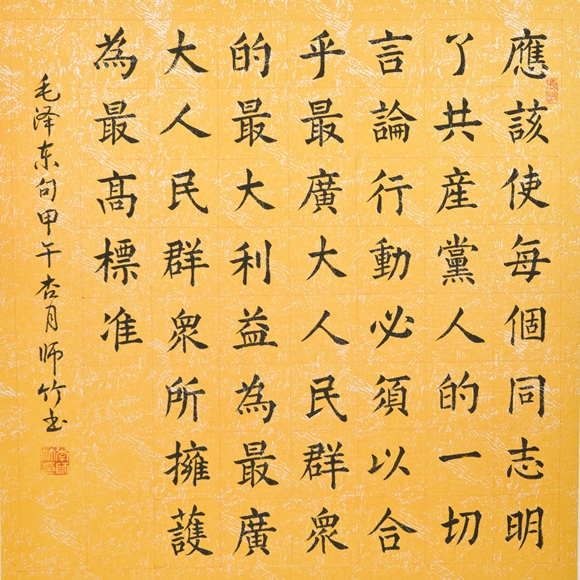 應該使每個同志明
了共産黨人的一切
言論行動必須以合
乎最廣大人民群衆
的最大利益為最廣
大人民群衆所擁護
為最高標准
毛泽东句甲午杏月师竹书